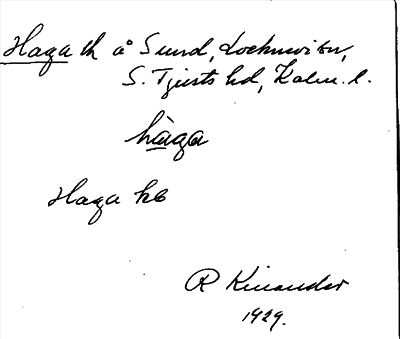 Haga th å Sund, Locknevi sn,
S. Tjusts hd, Kalm. l.
hàga
Haga hb
R Kinander
1929.